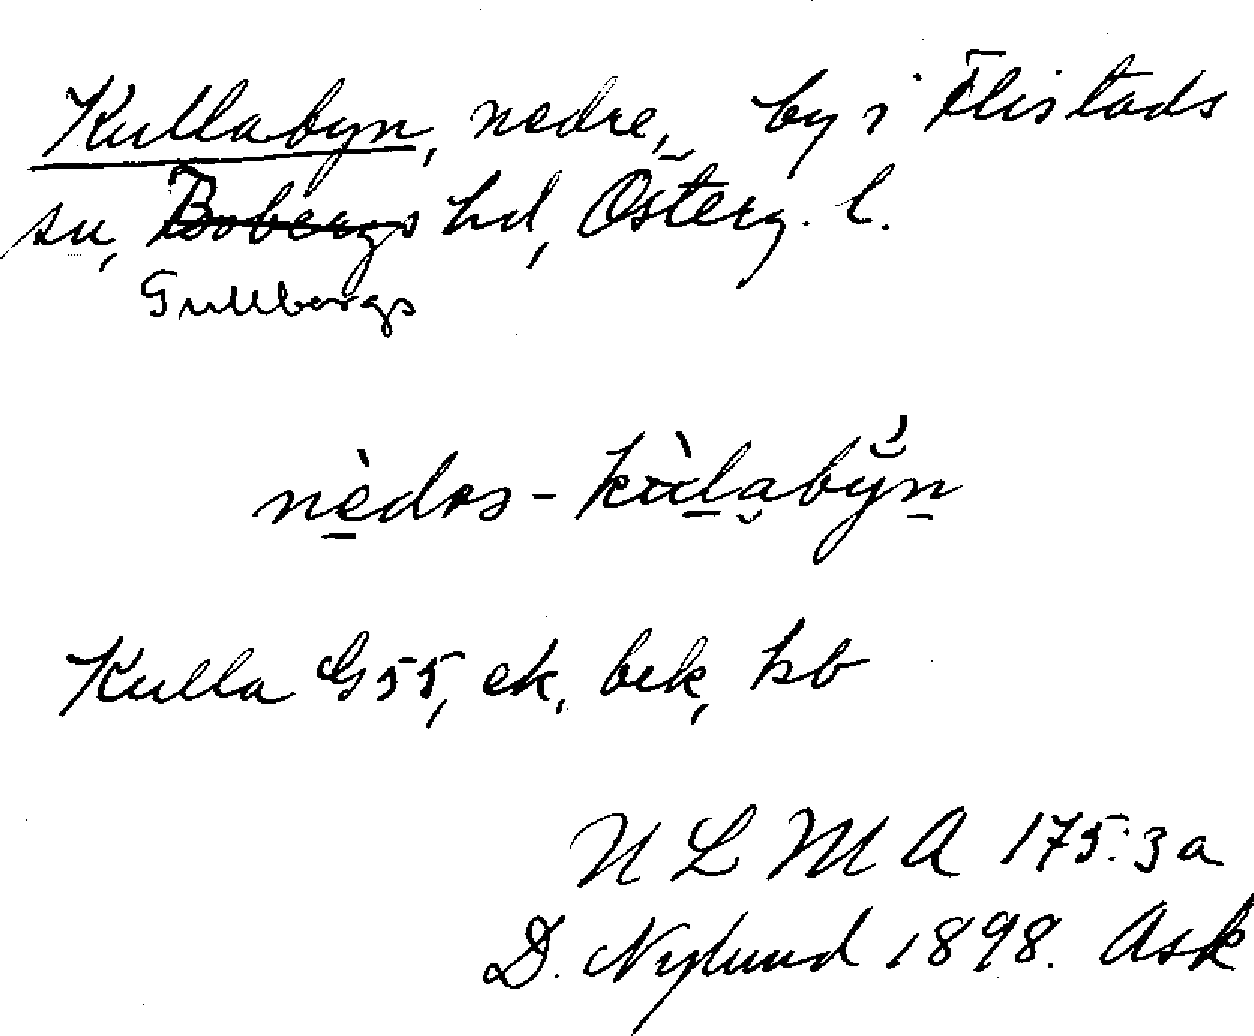 Kullabyn, nedre, by i Flistads
sn, Bobergs hd, Österg. l.
Gullbergs
nèdrs - kùlabyn
Kulla G55, ek, bek, hb
U L M A 175:3a
D. Nylund 1898. Ask